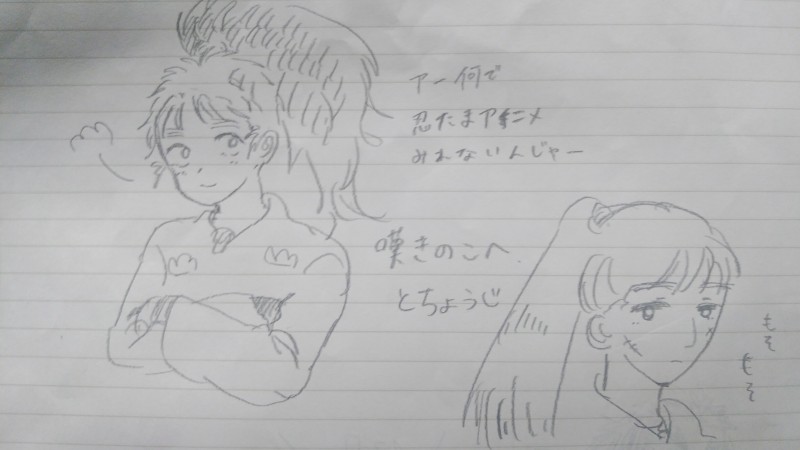 アー何で
忍たまアニメ
みれないんじゃー
嘆きのこへ
とちょうじ
もそ
もそ